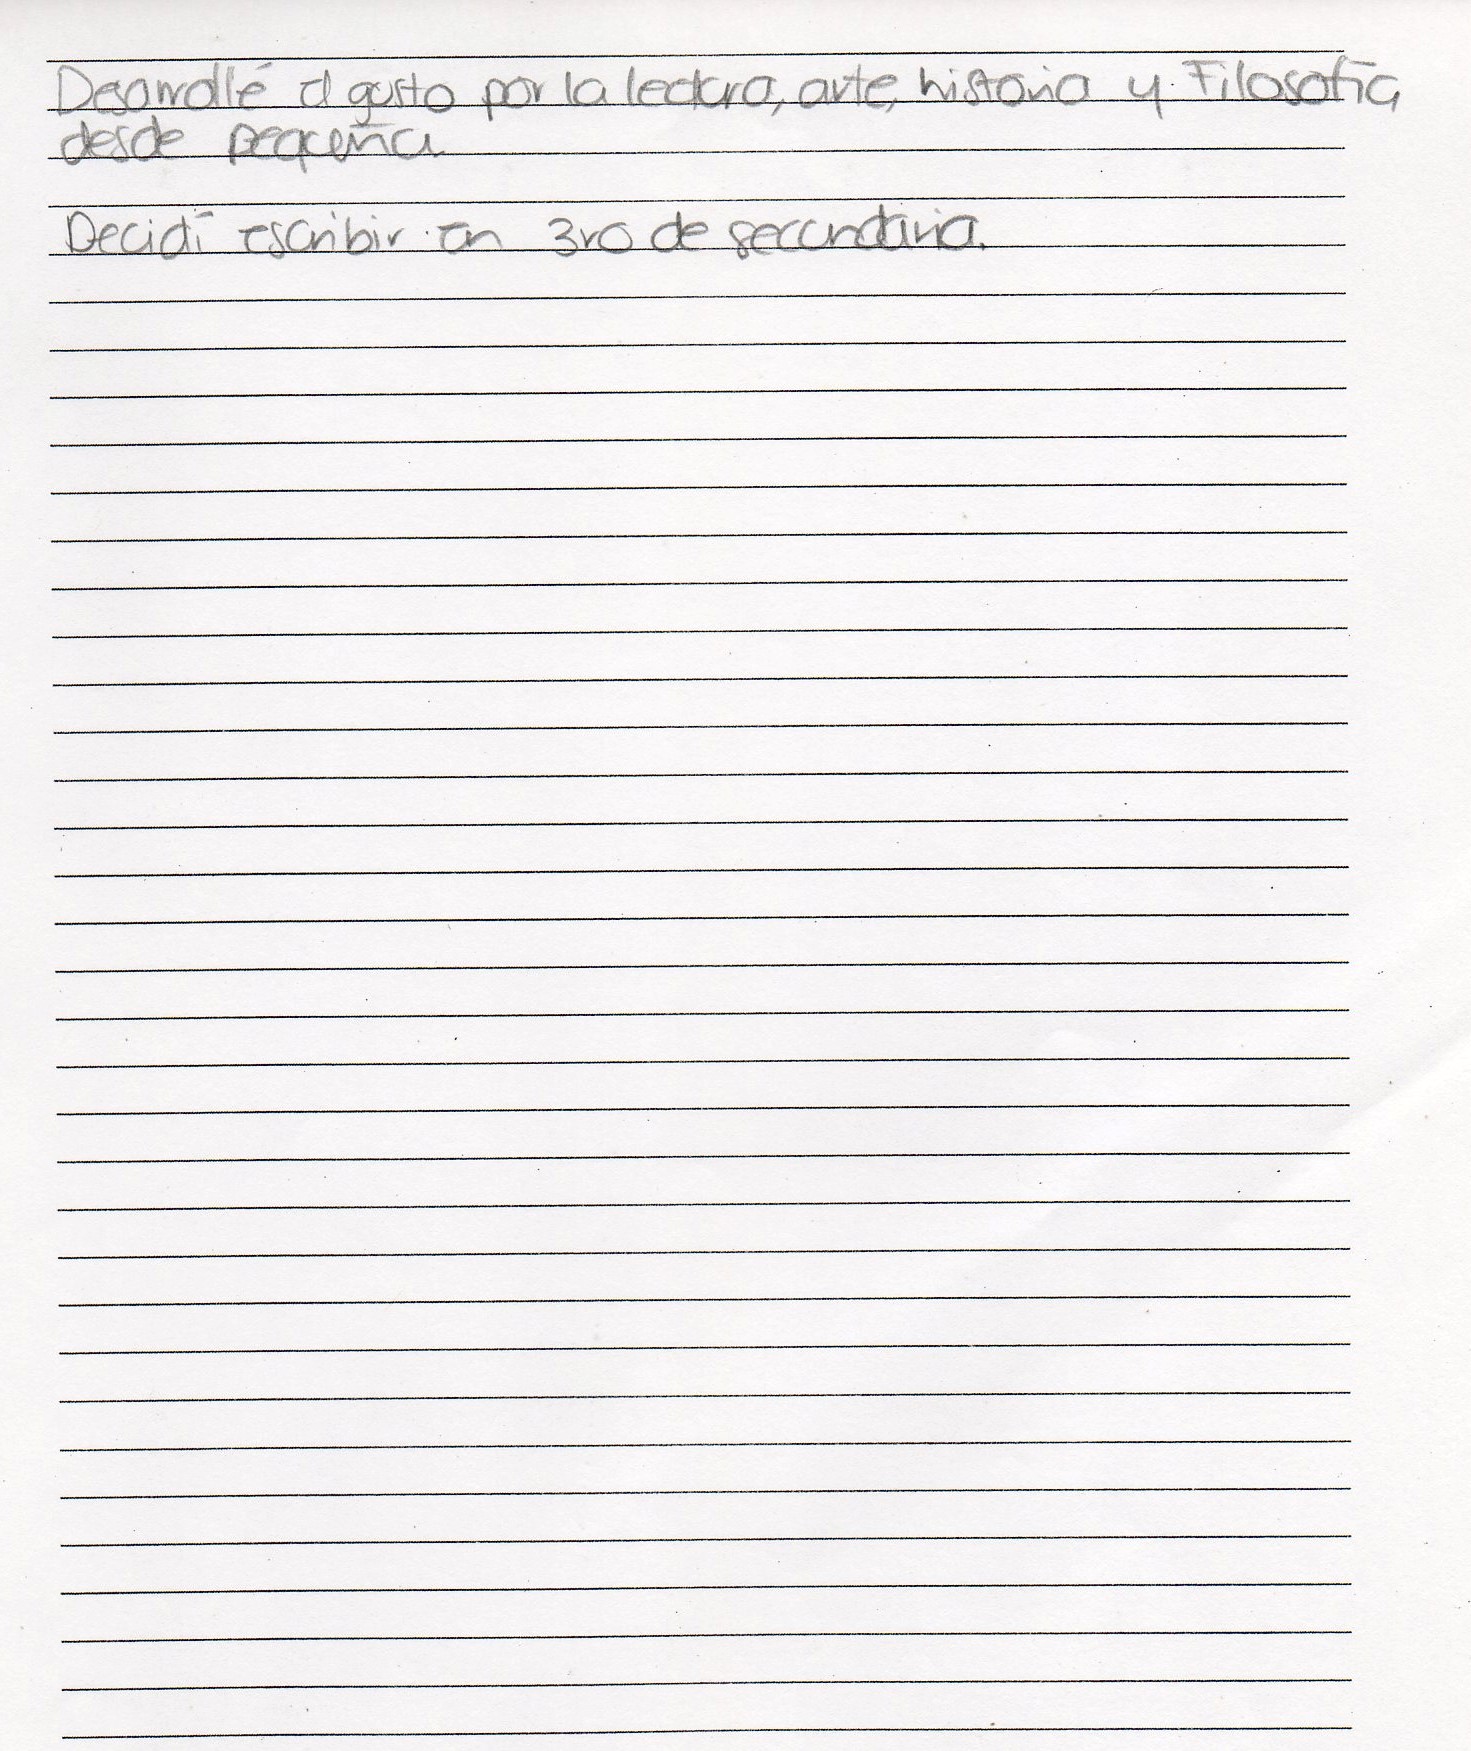 Desarrollé el gusto por la lectura, arte, historia y Filosofía
desde pequeña
Decidí escribir en 3ro de secundaria.